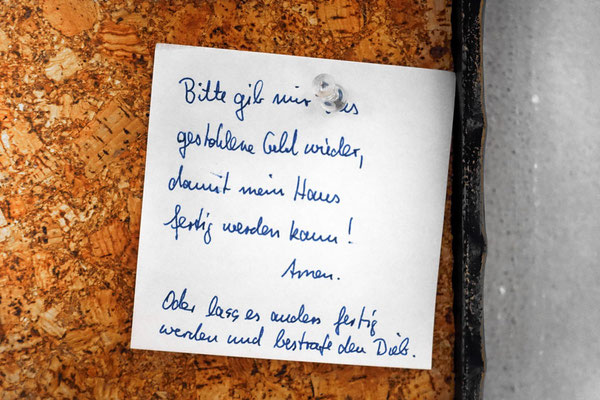 Bitte gib mir das
gestohlene Geld wieder,
damit mein Haus
fertig werden kann!
Amen.
Oder lass es anders fertig
werden und bestrafe den Dieb.